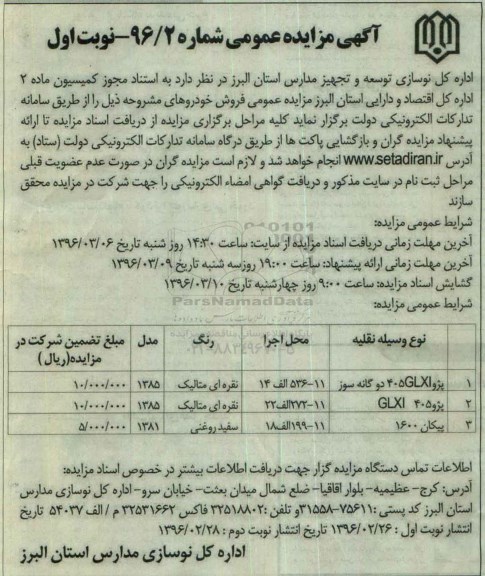 آگهی مزایده عمومی شماره ۹۶/۲-نوبت اول
اداره کل نوسازی توسعه و تجهیز مدارس استان البرز در نظر دارد به استناد مجوز کمیسیون ماده ۲
اداره کل اقتصاد و دارایی استان البرز مزایده عمومی فروش خودروهای مشروحه ذیل را از طریق سامانه
تدارکات الکترونیکی دولت برگزار نماید کلیه مراحل برگزاری مزایده از دریافت اسناد مزایده تا ارائه
پیشنهاد مزایده گران و بازگشایی پاکت ها از طریق درگاه سامانه تدارکات الکترونیکی دولت (ستاد) به
آدرس www.setadiran.ir انجام خواهد شد و لازم است مزایده گران در صورت عدم عضویت قبلی
مراحل ثبت نام در سایت مذکور و دریافت گواهی امضاء الکترونیکی را جهت شرکت در مزایده محقق
سازند
شرایط عمومی مزایده:
آخرین مهلت زمانی دریافت اسناد مزایده از سایت: ساعت ۱۴:۳۰ روز شنبه تاریخ ۱۳۹۶/۰۳/۰۶
آخرین مهلت زمانی ارائه پیشنهاد: ساعت ۱۹:۰۰ روزسه شنبه تاریخ ۱۳۹۶/۰۳/۰۹
گشایش اسناد مزایده: ساعت ۹:۰۰ روز چهارشنبه تاریخ ۱۳۹۶/۰۳/۱۰
ParsNamadData
شرایط عمومی مزایده:
نوع وسیله نقلیه محل اجرا رنگ مدل مبلغ تضمین شرکت در مزایده(ریال)
۱ پژو۴۰۵GLXI دو گانه سوز ۱۱-۵۳۶ الف ۱۴ نقره ای متالیک ۱۳۸۵ ۱۰/۰۰۰/۰۰۰
۲ پژو۴۰۵ GLXI ۱۱-۲۷۲الف۲۲ نقره ای متالیک ۱۳۸۵ ۱۰/۰۰۰/۰۰۰
۳ پیکان ۱۶۰۰ ۱۱-۱۹۹الف۱۸ سفید روغنی ۱۳۸۱ ۵/۰۰۰/۰۰۰
اطلاعات تماس دستگاه مزایده گزار جهت دریافت اطلاعات بیشتر در خصوص اسناد مزایده:
آدرس: کرج- عظیمیه- بلوار اقاقیا- ضلع شمال میدان بعثت- خیابان سرو- اداره کل نوسازی مدارس
استان البرز کد پستی :۷۵۶۱۱-۳۱۵۵۸و تلفن :۳۲۵۱۸۸۰۲ فاکس ۳۲۵۳۱۶۶۲ م / الف ۵۴۰۳۷ تاریخ
انتشار نوبت اول : ۱۳۹۶/۰۲/۲۶ تاریخ انتشار نوبت دوم : ۱۳۹۶/۰۲/۲۸
اداره کل نوسازی مدارس استان البرز